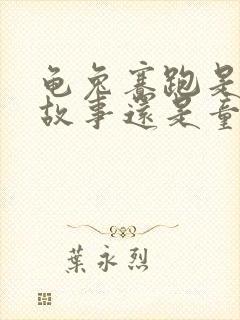 龟兔赛跑是
故事還是童
葉永烈